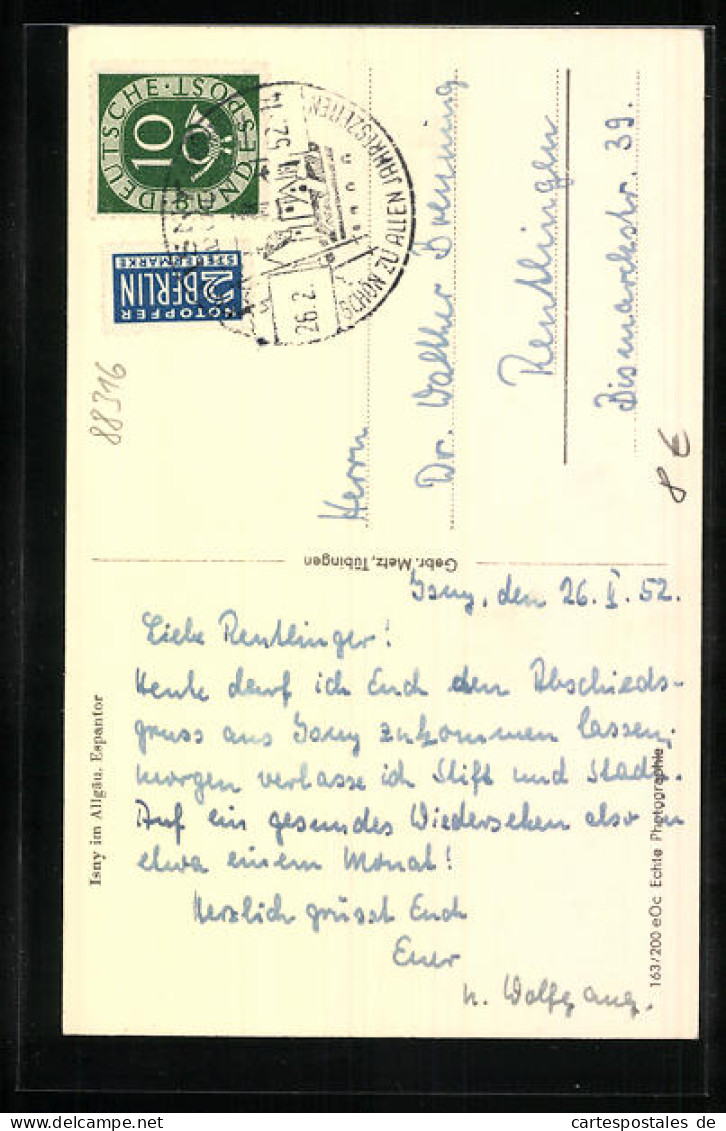 DEUTSCHE·POST
10
BUNDESPOST
NOTOPFER
2 BERLIN
STEUERMARKE
SCHÖN ZU ALLEN JAHRESZEITEN
26.2.52
88316
Herrn
Dr. Walther Brennung
Reutlingen
Bismarckstr. 39.
8 €
Gebr. Metz, Tübingen
Isny, den 26. II. 52.
Liebe Reutlinger!
Heute darf ich Euch den Abschieds-
gruss aus Isny zukommen lassen;
morgen verlasse ich Stift und Stadt.
Auf ein gesundes Wiedersehen also in
etwa einem Monat!
Herzlich grüsst Euch
Euer
Wolfgang.
Isny im Allgäu, Espantor
163/200 eOc Echte Photographie
© OldThing
cartespostales . de